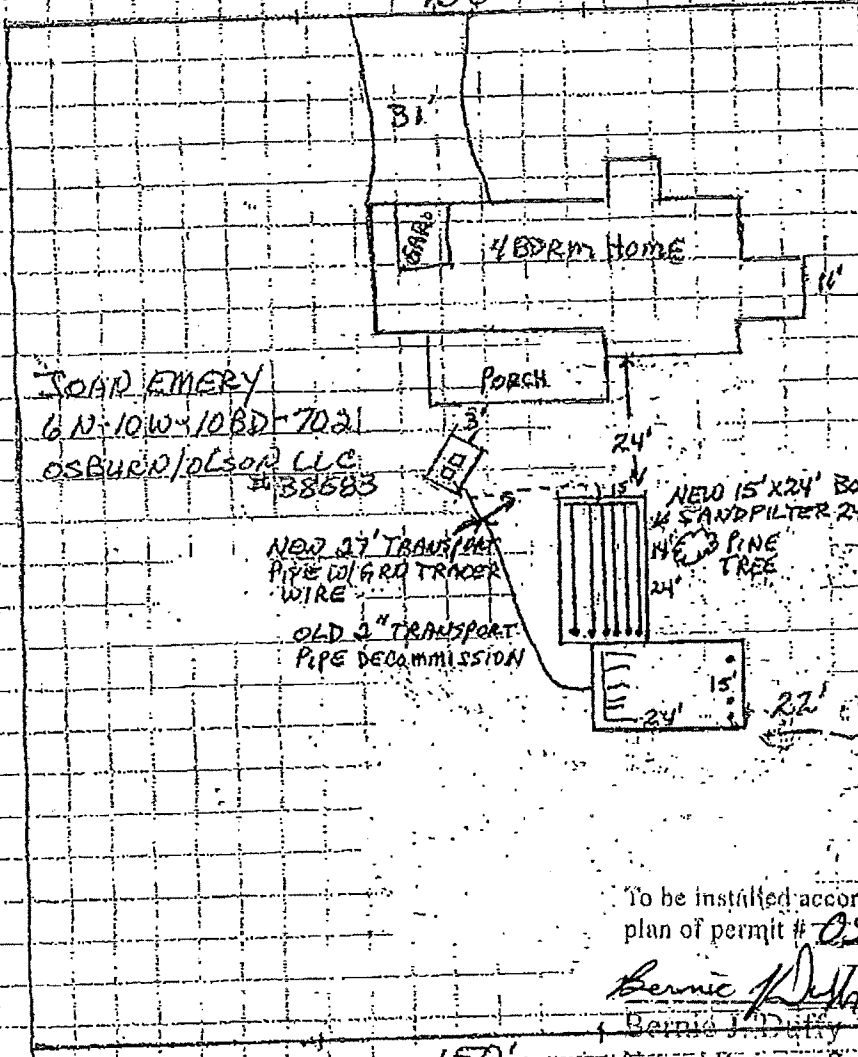 31'
GAR.
4 BDRM HOME
16'
PORCH
JOAN EMERY
6N-10W-10BD-7021
OSBURN/OLSON LLC
#38683
3'
24'
15'
NEW 15'X24' BO
SANDFILTER 24
14'
PINE
TREE
24'
NEW 27' TRANSPORT
PIPE W/GRN TRACER
WIRE
OLD 2" TRANSPORT
PIPE DECOMMISSION
15'
24'
22'
To be installed accor
plan of permit #
Bernie J. Duffy
Bernie J. Duffy
150'